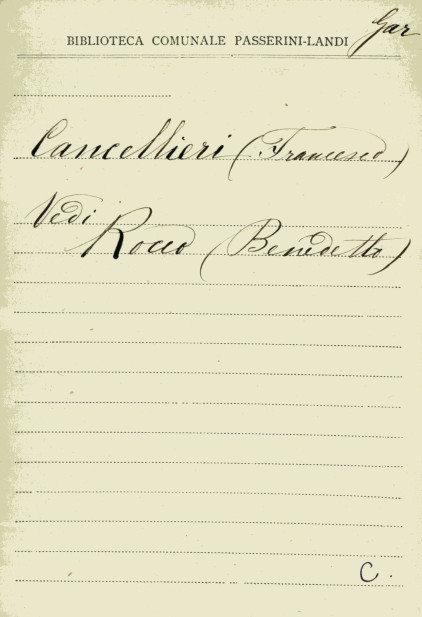 Gar
BIBLIOTECA COMUNALE PASSERINI-LANDI
Cancellieri (Francesco)
Vedi
Rocco (Benedetto)
C.